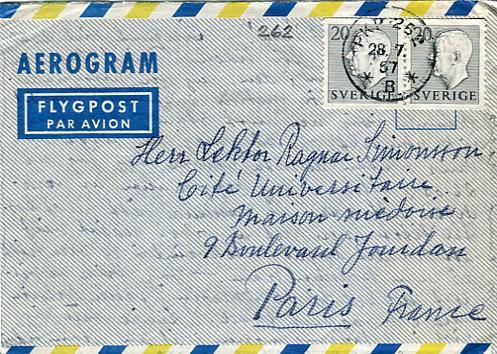 262
20 20
PKP 262
28.7.
57
B
SVERIGE SVERIGE
AEROGRAM
FLYGPOST
PAR AVION
Herr Lektor Ragnar Simonsson
Cité Universitaire
maison suédoise
9 Boulevard Jourdan
Paris France